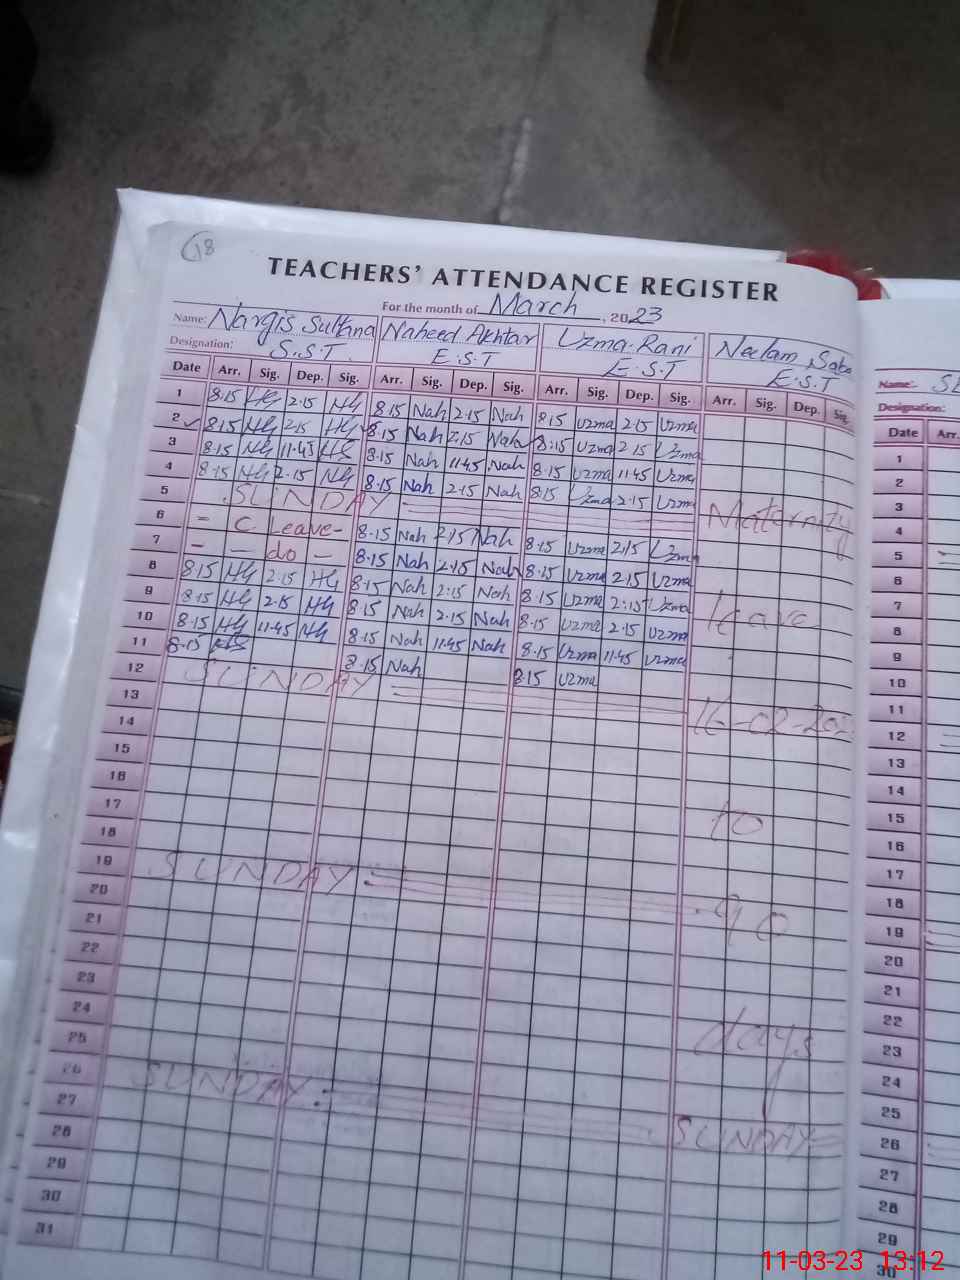 68
TEACHERS' ATTENDANCE REGISTER
For the month of March, 2023
Name: Nargis Sultana Naheed Akhtar Uzma Rani Neelam Saba
Designation: S.S.T E.S.T E.S.T E.S.T
Date Arr. Sig. Dep. Sig. Arr. Sig. Dep. Sig. Arr. Sig. Dep. Sig. Arr. Sig. Dep. Sig.
1 8.15 2.15 8.15 Nah 2.15 Nah 8.15 Uzma 2.15 Uzma
2 8.15 2.15 8.15 Nah 2.15 Nah 8.15 Uzma 2.15 Uzma
3 8.15 11.45 8.15 Nah 11.45 Nah 8.15 Uzma 11.45 Uzma
4 8.15 2.15 8.15 Nah 2.15 Nah 8.15 Uzma 2.15 Uzma
5 SUNDAY
6 - C. Leave - 8.15 Nah 2.15 Nah 8.15 Uzma 2.15 Uzma
7 - - do - 8.15 Nah 2.15 Nah 8.15 Uzma 2.15 Uzma
8 8.15 2.15 8.15 Nah 2.15 Nah 8.15 Uzma 2.15 Uzma
9 8.15 2.15 8.15 Nah 2.15 Nah 8.15 Uzma 2.15 Uzma
10 8.15 11.45 8.15 Nah 11.45 Nah 8.15 Uzma 11.45 Uzma
11 8.15 8.15 Nah 8.15 Uzma
12 SUNDAY
13
14
15
16
17
18
19 SUNDAY
20
21
22
23
24
25
26 SUNDAY
27
28
29
30
31
Maternity
leave
16-02-202
to
90
days
SUNDAY
Name:
Designation:
Date Arr.
1
2
3
4
5
6
7
8
9
10
11
12
13
14
15
16
17
18
19
20
21
22
23
24
25
26
27
28
29
30
11-03-23 13:12